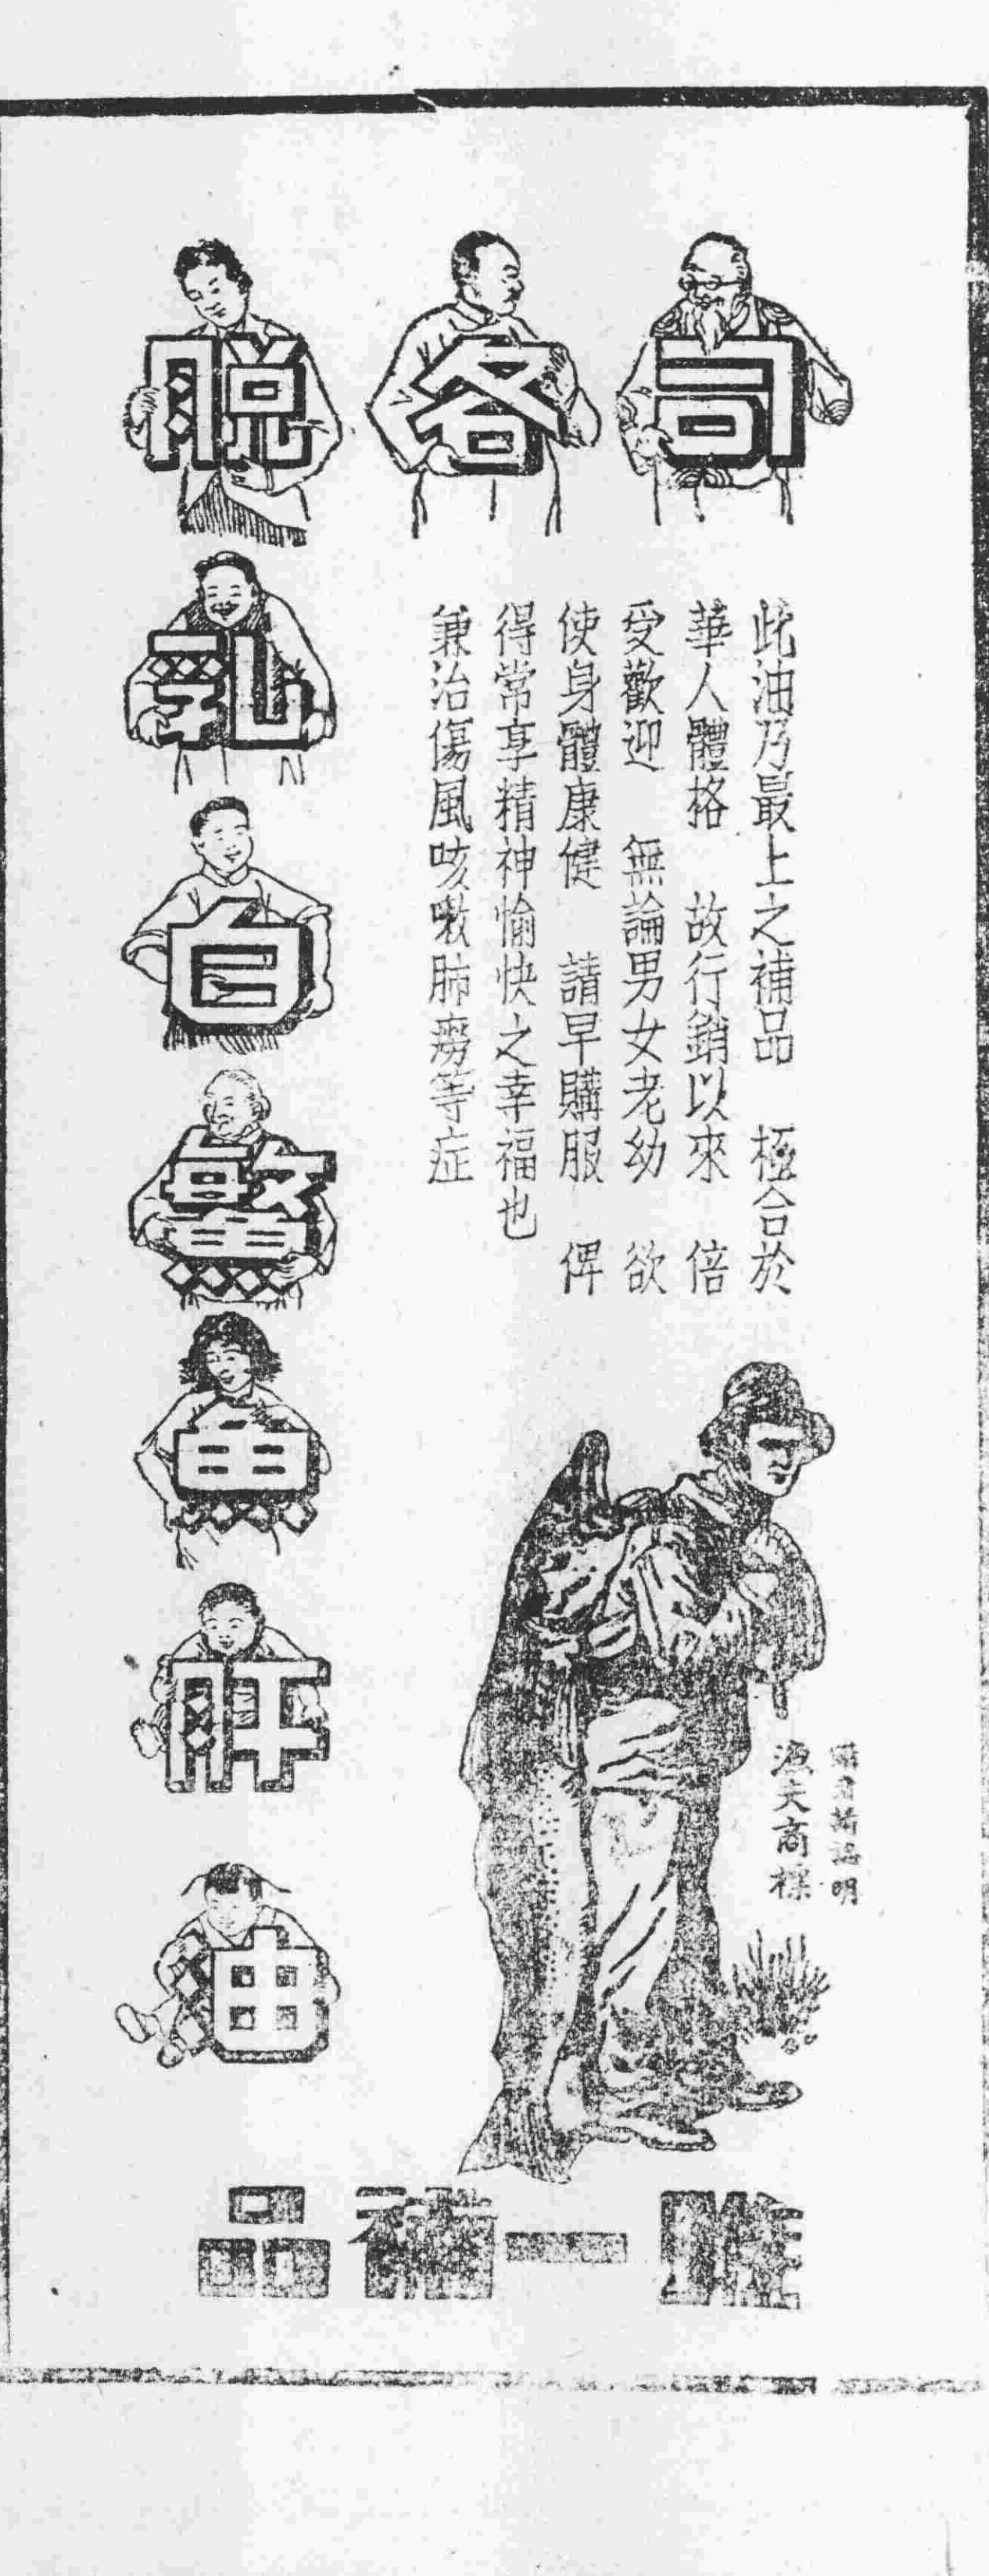 司各脫
乳白鰵魚肝油
此油乃最上之補品　極合於
華人體格　故行銷以來　倍
受歡迎　無論男女老幼　欲
使身體康健　請早購服　俾
得常享精神愉快之幸福也
兼治傷風咳嗽肺癆等症
認明
漁夫商標
唯一補品